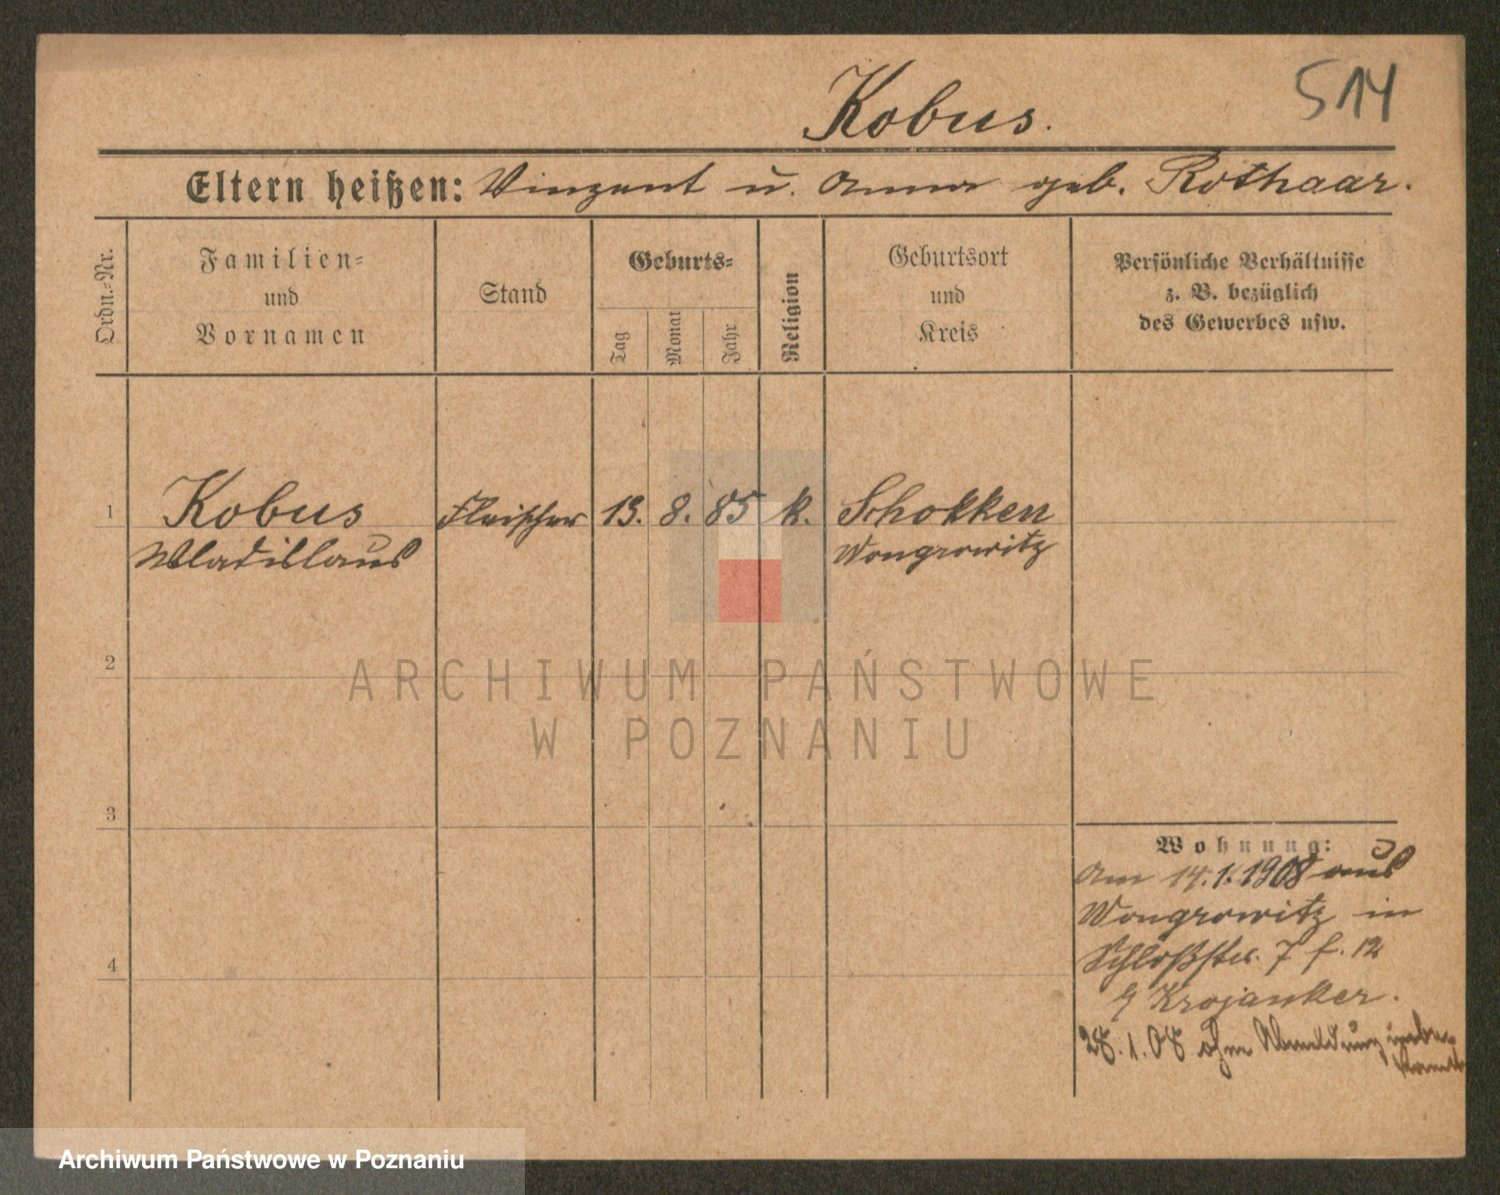 514
Kobus.
Eltern heißen: Vinzent u. Anna geb. Rothaar.
Ordn.-Nr.
Familien-
und
Vornamen
Stand
Geburts-
Tag
Monat
Jahr
Religion
Geburtsort
und
Kreis
Persönliche Verhältnisse
z. B. bezüglich
des Gewerbes usw.
1
Kobus Fleischer 13. 8. 85 k. Schokken
Wladislaus Wongrowitz
2
ARCHIWUM PAŃSTWOWE
W POZNANIU
3
Wohnung:
Am 14.1.1908 aus
Wongrowitz in
Schloßstr. 7 f. 12
4
Krojanker.
28.1.08 ohne Abmeldung unbe-
kannt
Archiwum Państwowe w Poznaniu